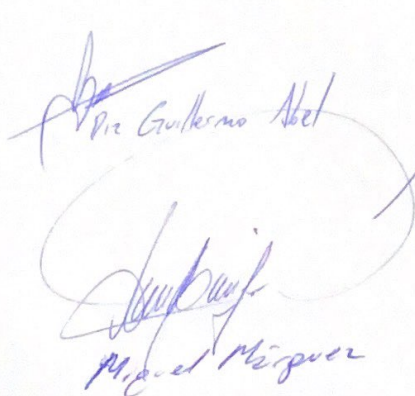 Piz Guillermo Abel
Miguel Márquez